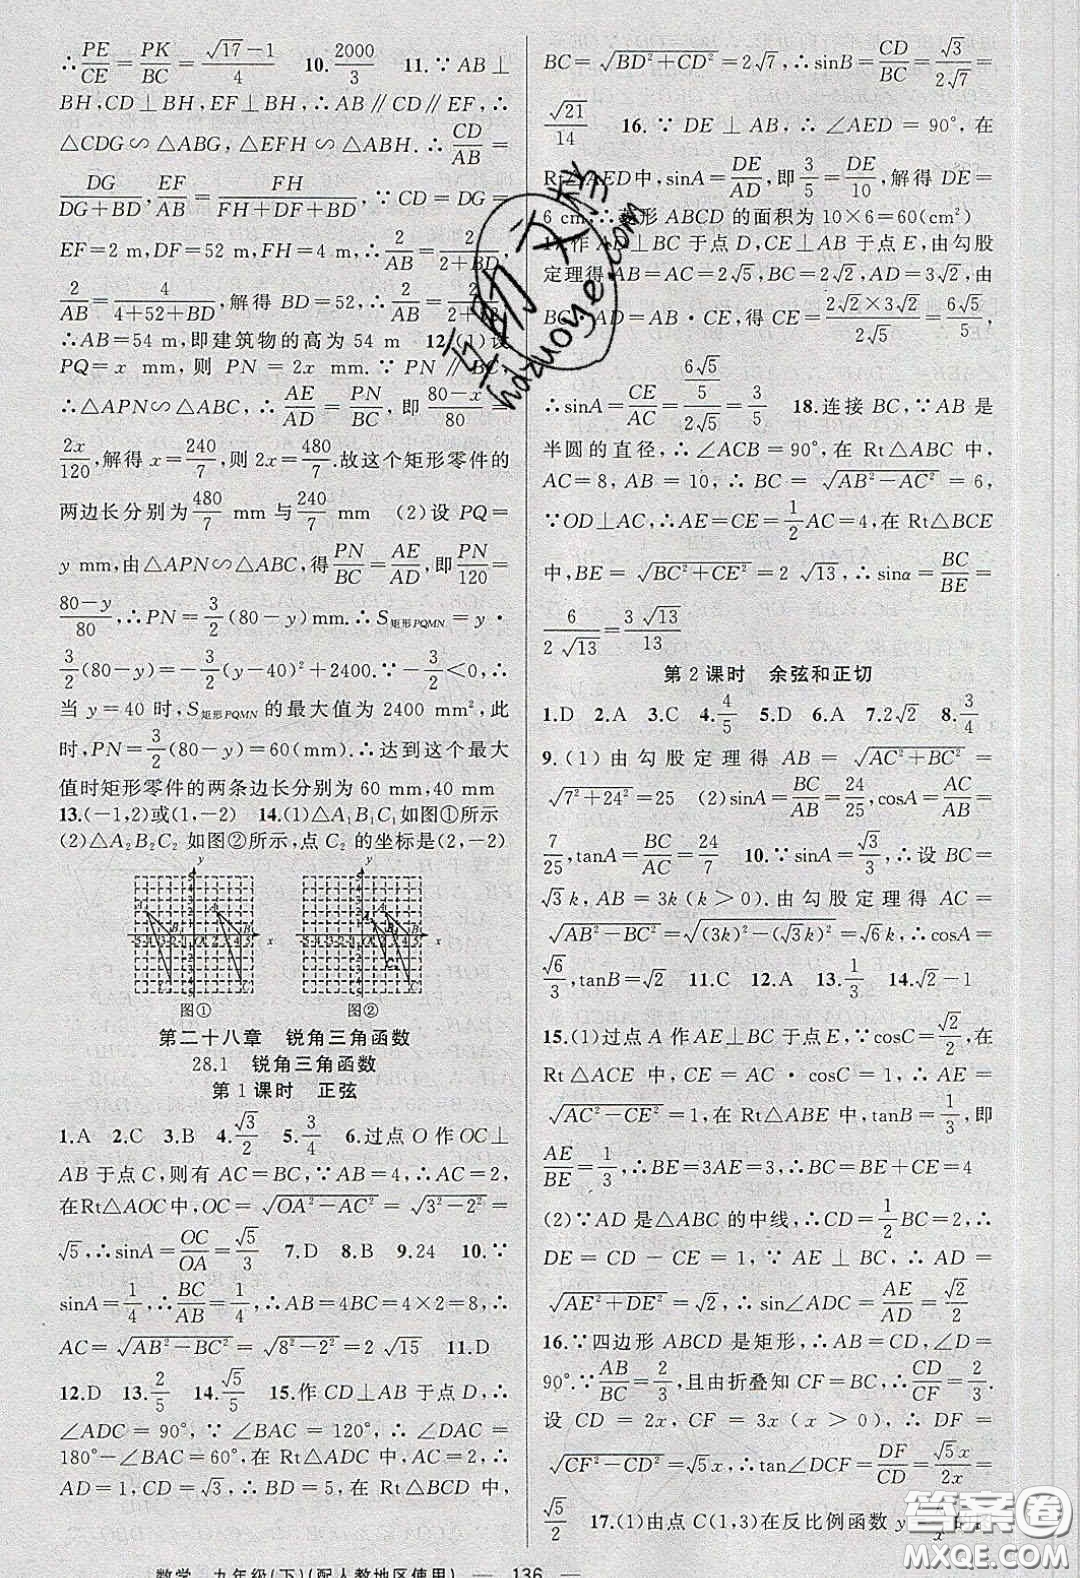 ∴PE/CE=PK/BC=(√17-1)/4 10. 2000/3 11.∵AB⊥
BH,CD⊥BH,EF⊥BH,∴AB∥CD∥EF,∴
△CDG∽△ABG,△EFH∽△ABH.∴CD/AB=
DG/(DG+BD),EF/AB=FH/(FH+DF+BD),∵CD=DG=
EF=2 m,DF=52 m,FH=4 m,∴2/AB=2/(2+BD),
2/AB=4/(4+52+BD),解得BD=52,∴2/AB=2/(2+52),
∴AB=54 m,即建筑物的高为54 m 12.(1)设
PQ=x mm,则PN=2x mm.∵PN∥BC,
∴△APN∽△ABC,∴AE/AD=PN/BC,即(80-x)/80=
2x/120,解得x=240/7,则2x=480/7.故这个矩形零件的
两边长分别为480/7 mm与240/7 mm (2)设PQ=
y mm,由△APN∽△ABC,得PN/BC=AE/AD,即PN/120=
(80-y)/80,∴PN=3/2(80-y)mm.∴S矩形PQMN=y·
3/2(80-y)=-3/2(y-40)²+2400.∵-3/2<0,∴
当y=40时,S矩形PQMN的最大值为2400 mm²,此
时,PN=3/2(80-y)=60(mm).∴达到这个最大
值时矩形零件的两条边长分别为60 mm,40 mm
13.(-1,2)或(1,-2) 14.(1)△A₁B₁C₁如图①所示
(2)△A₂B₂C₂如图②所示,点C₂的坐标是(2,-2)
图① 图②
第二十八章 锐角三角函数
28.1 锐角三角函数
第1课时 正弦
1.A 2.C 3.B 4.√3/2 5.3/4 6.过点O作OC⊥
AB于点C,则有AC=BC,∵AB=4,∴AC=2,
在Rt△AOC中,OC=√(OA²-AC²)=√(3²-2²)=
√5,∴sinA=OC/OA=√5/3 7.D 8.B 9.24 10.∵
sinA=1/4,∴BC/AB=1/4,∴AB=4BC=4×2=8,∴
AC=√(AB²-BC²)=√(8²-2²)=2√15 11.D
12.D 13.2/5 14.√5/5 15.作CD⊥AB于点D,∴
∠ADC=90°,∵∠BAC=120°,∴∠DAC=
180°-∠BAC=60°,在Rt△ADC中,AC=2,∴
AD=1,CD=√3,∴BD=5,在Rt△BCD中,
BC=√(BD²+CD²)=2√7,∴sinB=CD/BC=√3/(2√7)=
√21/14 16.∵DE⊥AB,∴∠AED=90°,在
Rt△AED中,sinA=DE/AD,即3/5=DE/10,解得DE=
6 cm,∴菱形ABCD的面积为10×6=60(cm²)
17.作AD⊥BC于点D,CE⊥AB于点E,由勾股
定理得AB=AC=2√5,BC=2√2,AD=3√2,由
BC·AD=AB·CE,得CE=(2√2×3√2)/(2√5)=6√5/5,
∴sinA=CE/AC=(6√5/5)/(2√5)=3/5 18.连接BC,∵AB是
半圆的直径,∴∠ACB=90°,在Rt△ABC中,
AC=8,AB=10,∴BC=√(AB²-AC²)=6,
∵OD⊥AC,∴AE=CE=1/2AC=4,在Rt△BCE
中,BE=√(BC²+CE²)=2√13,∴sinα=BC/BE=
6/(2√13)=3√13/13
第2课时 余弦和正切
1.D 2.A 3.C 4.4/5 5.D 6.A 7.2√2 8.3/4
9.(1)由勾股定理得AB=√(AC²+BC²)=
√(7²+24²)=25 (2)sinA=BC/AB=24/25,cosA=AC/AB=
7/25,tanA=BC/AC=24/7 10.∵sinA=√3/3,∴设BC=
√3k,AB=3k(k>0).由勾股定理得AC=
√(AB²-BC²)=√((3k)²-(√3k)²)=√6k,∴cosA=
√6/3,tanB=√2 11.C 12.A 13.1/3 14.√2-1
15.(1)过点A作AE⊥BC于点E,∵cosC=√2/2,在
Rt△ACE中,CE=AC·cosC=1,∴AE=
√(AC²-CE²)=1,在Rt△ABE中,tanB=1/3,即
AE/BE=1/3,∴BE=3AE=3,∴BC=BE+CE=4
(2)∵AD是△ABC的中线,∴CD=1/2BC=2,∴
DE=CD-CE=1,∵AE⊥BC,∴AD=
√(AE²+DE²)=√2,∴sin∠ADC=AE/AD=√2/2
16.∵四边形ABCD是矩形,∴AB=CD,∠D=
90°.∵AB/BC=2/3,且由折叠知CF=BC,∴CD/CF=2/3.
设CD=2x,CF=3x(x>0),∴DF=
√(CF²-CD²)=√5x,∴tan∠DCF=DF/CD=√5x/2x=
√5/2 17.(1)由点C(1,3)在反比例函数y
数学 九年级(下)(配人教地区使用) — 136 —
答案圈
hdzuoye.com